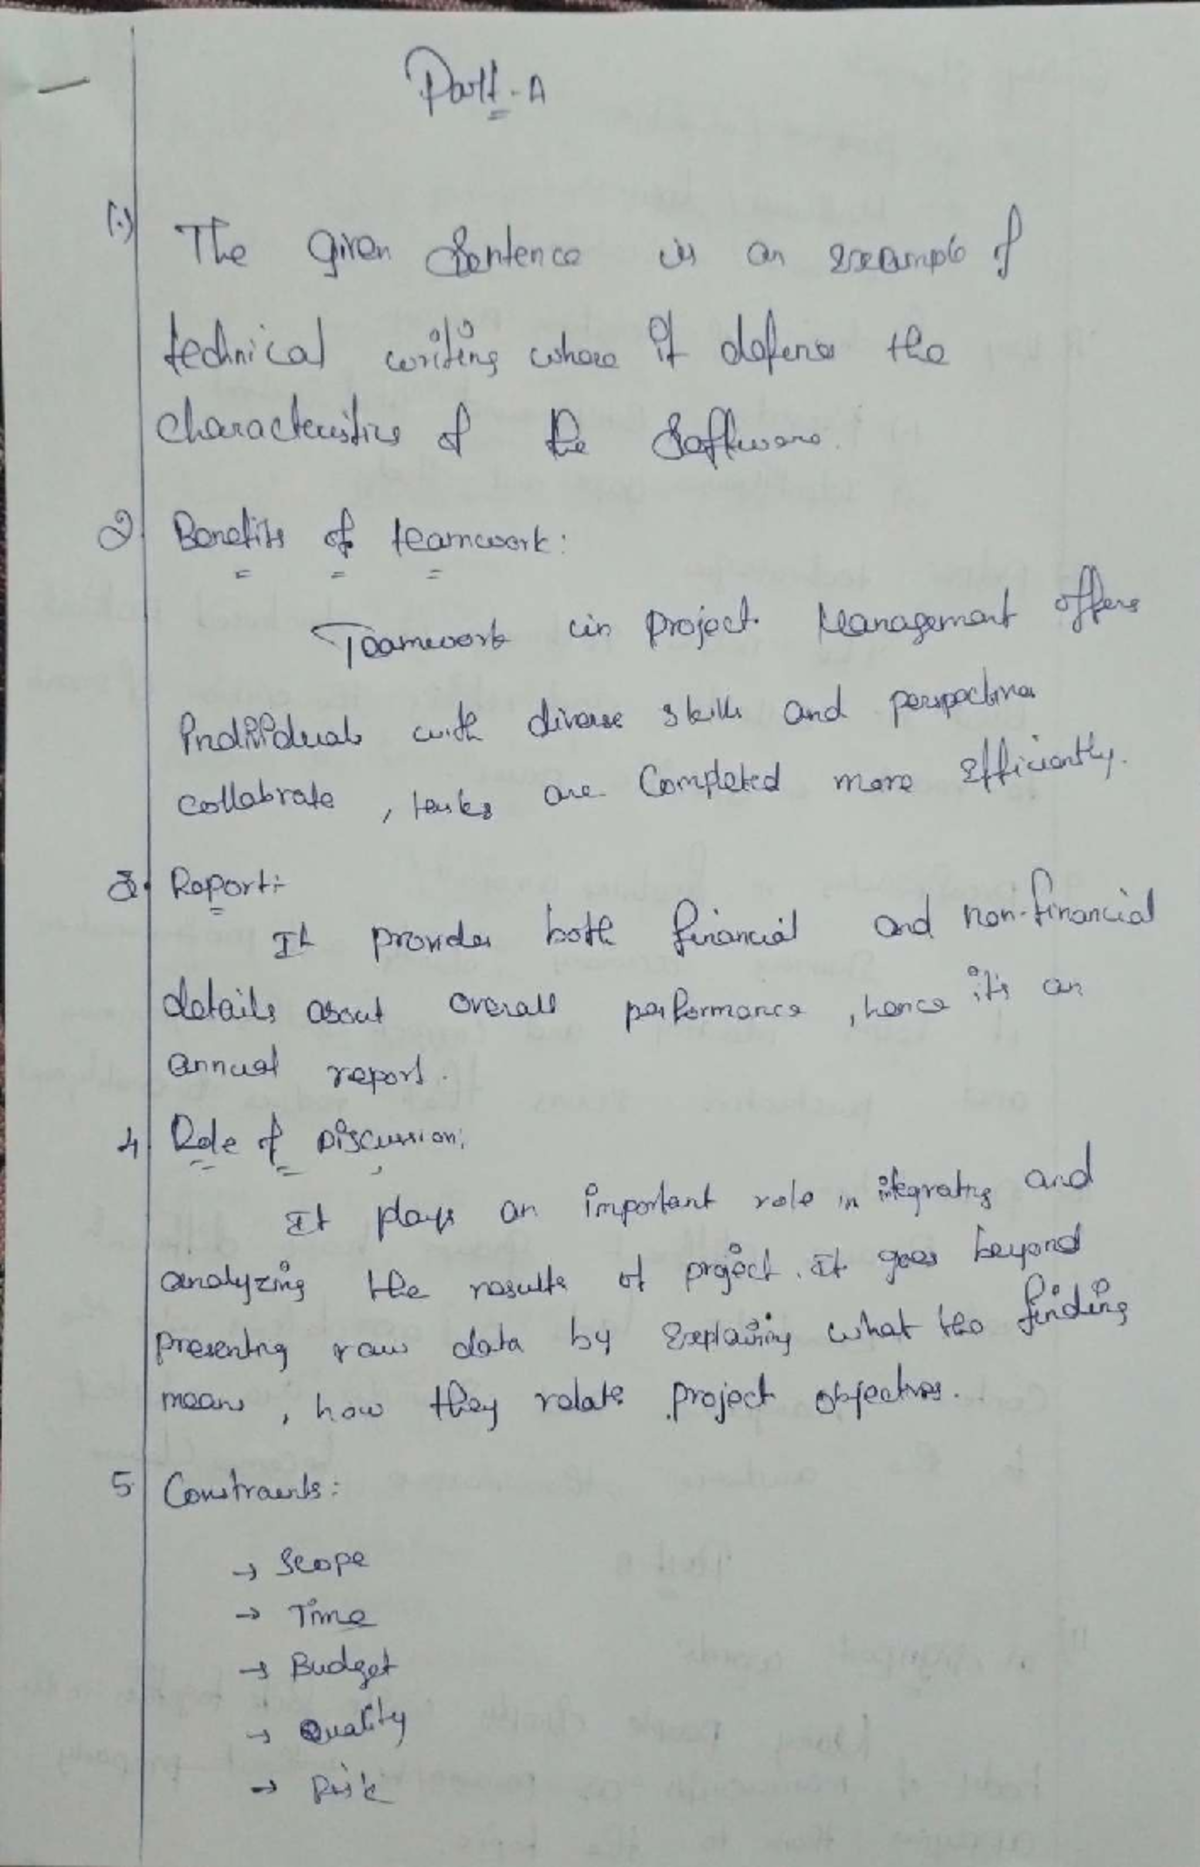 Part-A
1.) The given Sentence is an example of
technical writing where it defines the
characteristics of the Software.
2. Benefits of teamwork:
Teamwork in project Management offers
individuals with diverse skills and perspectives
collabrate, tasks are Completed more efficiently.
3. Report:-
It provides both financial and non-financial
details about overall performance, hence it's an
annual report.
4. Role of Discussion:
It plays an important role in integrating and
analyzing the results of project. It goes beyond
presenting raw data by explaining what the finding
means, how they relate project objectives.
5. Constraints:
→ Scope
→ Time
→ Budget
→ Quality
→ Risk